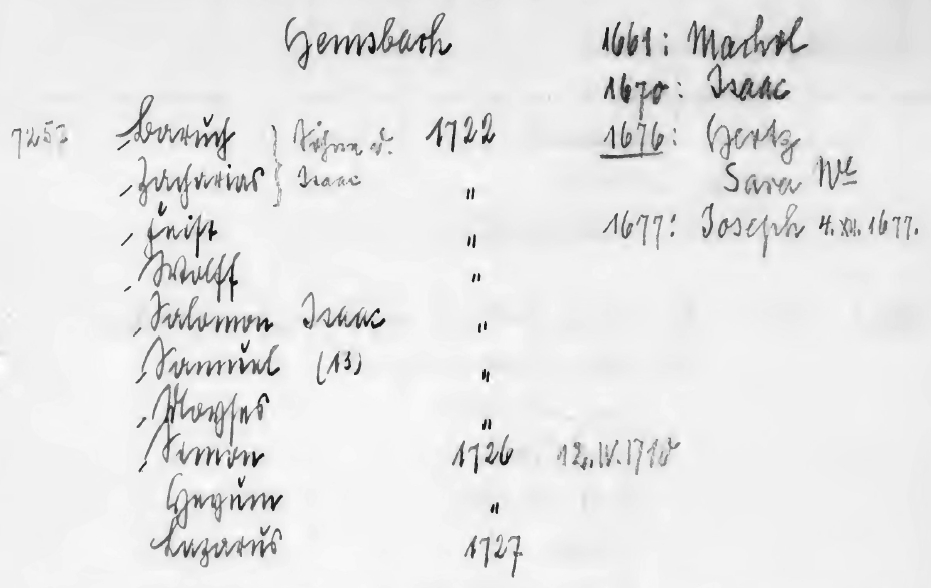 Hemsbach
1661: Machol
1670: Isaac
7253 Baruch } Söhne v. 1722
1676: Hertz
Zacharias } Isaac "
Sara We
Feist "
1677: Joseph 4. XII. 1677.
Wolff "
Salomon Isaac "
Samuel (13) "
Moyses "
Simon 1726 12. IV. 1718
Heyum "
Lazarus 1727